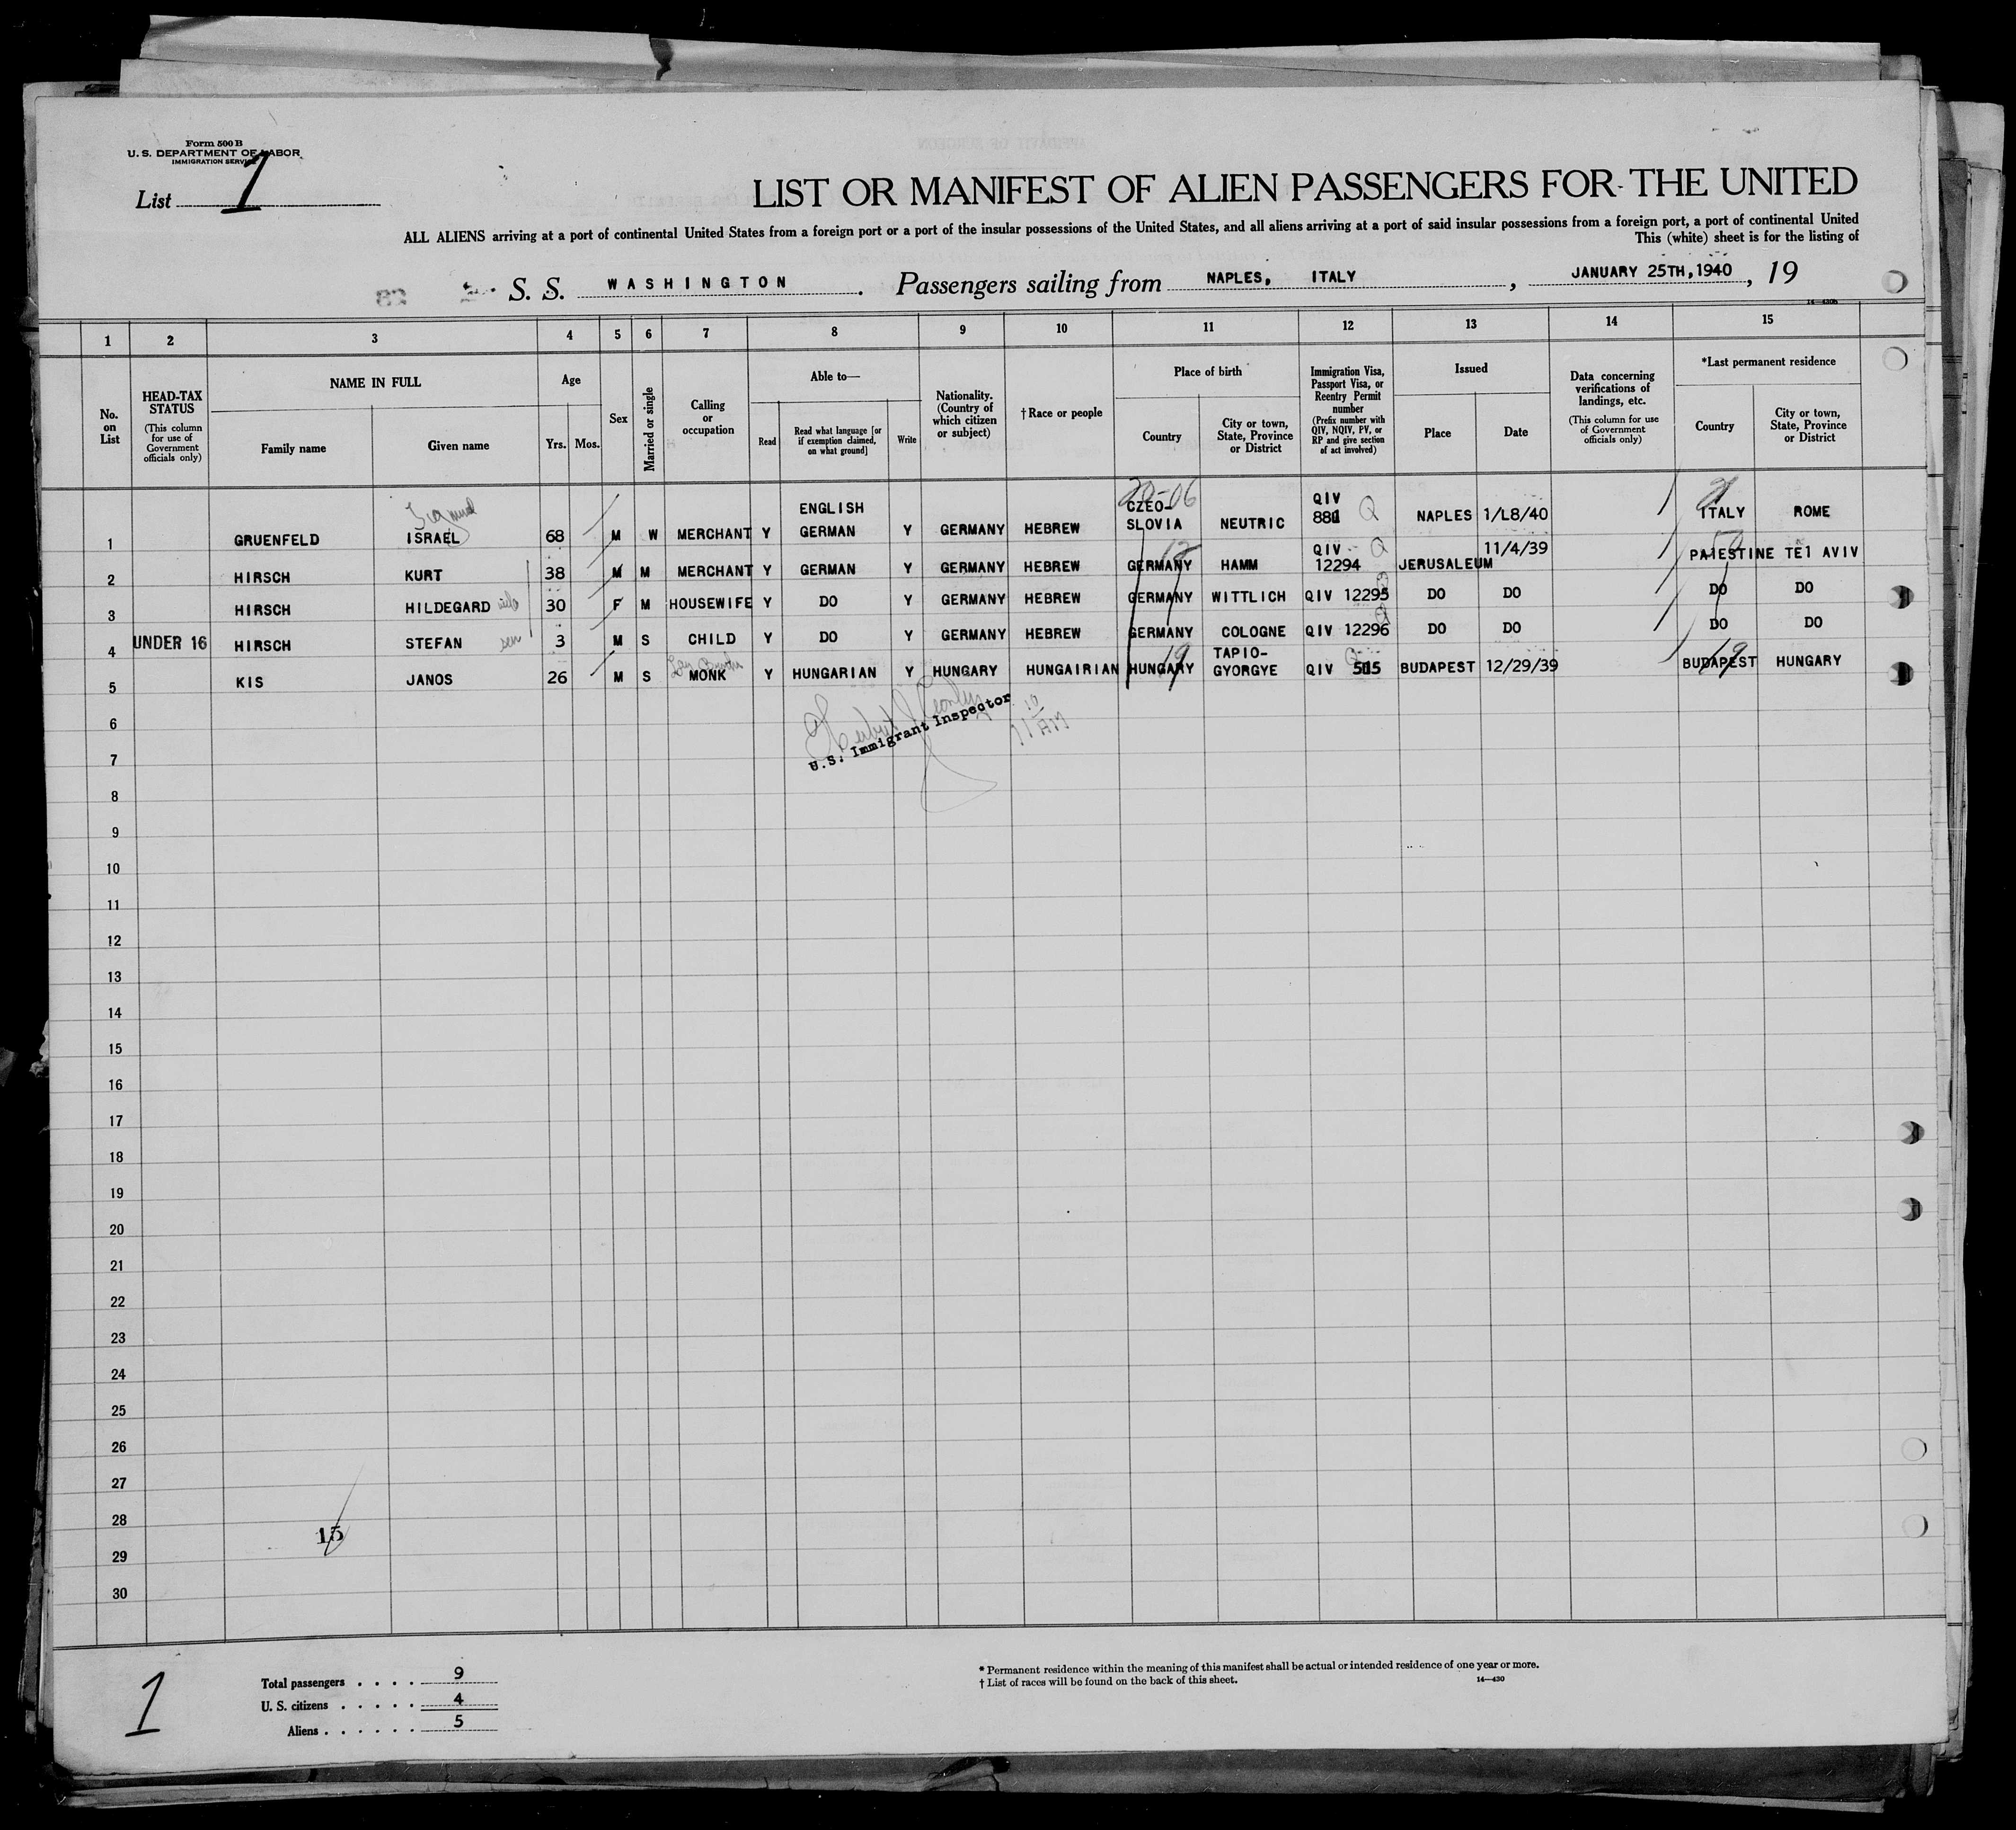 Form 500 B
U. S. DEPARTMENT OF LABOR
IMMIGRATION SERVICE
List 1
LIST OR MANIFEST OF ALIEN PASSENGERS FOR THE UNITED
ALL ALIENS arriving at a port of continental United States from a foreign port or a port of the insular possessions of the United States, and all aliens arriving at a port of said insular possessions from a foreign port, a port of continental United
This (white) sheet is for the listing of
S. S. WASHINGTON. Passengers sailing from NAPLES, ITALY, JANUARY 25TH, 1940, 19
14—430b
1 2 3 4 5 6 7 8 9 10 11 12 13 14 15
No. on List
HEAD-TAX STATUS (This column for use of Government officials only)
NAME IN FULL
Family name
Given name
Age
Yrs. Mos.
Sex
Married or single
Calling or occupation
Able to—
Read
Read what language [or if exemption claimed, on what ground]
Write
Nationality. (Country of which citizen or subject)
†Race or people
Place of birth
Country
City or town, State, Province or District
Immigration Visa, Passport Visa, or Reentry Permit number (Prefix number with QIV, NQIV, PV, or RP and give section of act involved)
Issued
Place
Date
Data concerning verifications of landings, etc. (This column for use of Government officials only)
*Last permanent residence
Country
City or town, State, Province or District
1 GRUENFELD Sigmund ISRAEL 68 M W MERCHANT Y ENGLISH GERMAN Y GERMANY HEBREW 20-06 CZEO-SLOVIA NEUTRIC QIV 881 Q NAPLES 1/L8/40 ITALY ROME
2 HIRSCH KURT 38 M M MERCHANT Y GERMAN Y GERMANY HEBREW GERMANY HAMM QIV 12294 Q JERUSALEUM 11/4/39 PAlESTINE TE1 AVIV
3 HIRSCH HILDEGARD wife 30 F M HOUSEWIFE Y DO Y GERMANY HEBREW GERMANY WITTLICH QIV 12295 Q DO DO DO DO
4 UNDER 16 HIRSCH STEFAN son 3 M S CHILD Y DO Y GERMANY HEBREW GERMANY COLOGNE QIV 12296 Q DO DO DO DO
5 KIS JANOS 26 M S Lay Brother MONK Y HUNGARIAN Y HUNGARY HUNGAIRIAN 19 HUNGARY TAPIO-GYORGYE QIV 515 Q BUDAPEST 12/29/39 19 BUDAPEST HUNGARY
6
U.S. Immigrant Inspector
10
11 AM
7
8
9
10
11
12
13
14
15
16
17
18
19
20
21
22
23
24
25
26
27
28
15
29
30
1
Total passengers . . . . 9
U. S. citizens . . . . . 4
Aliens . . . . . . 5
* Permanent residence within the meaning of this manifest shall be actual or intended residence of one year or more.
† List of races will be found on the back of this sheet.
14—430